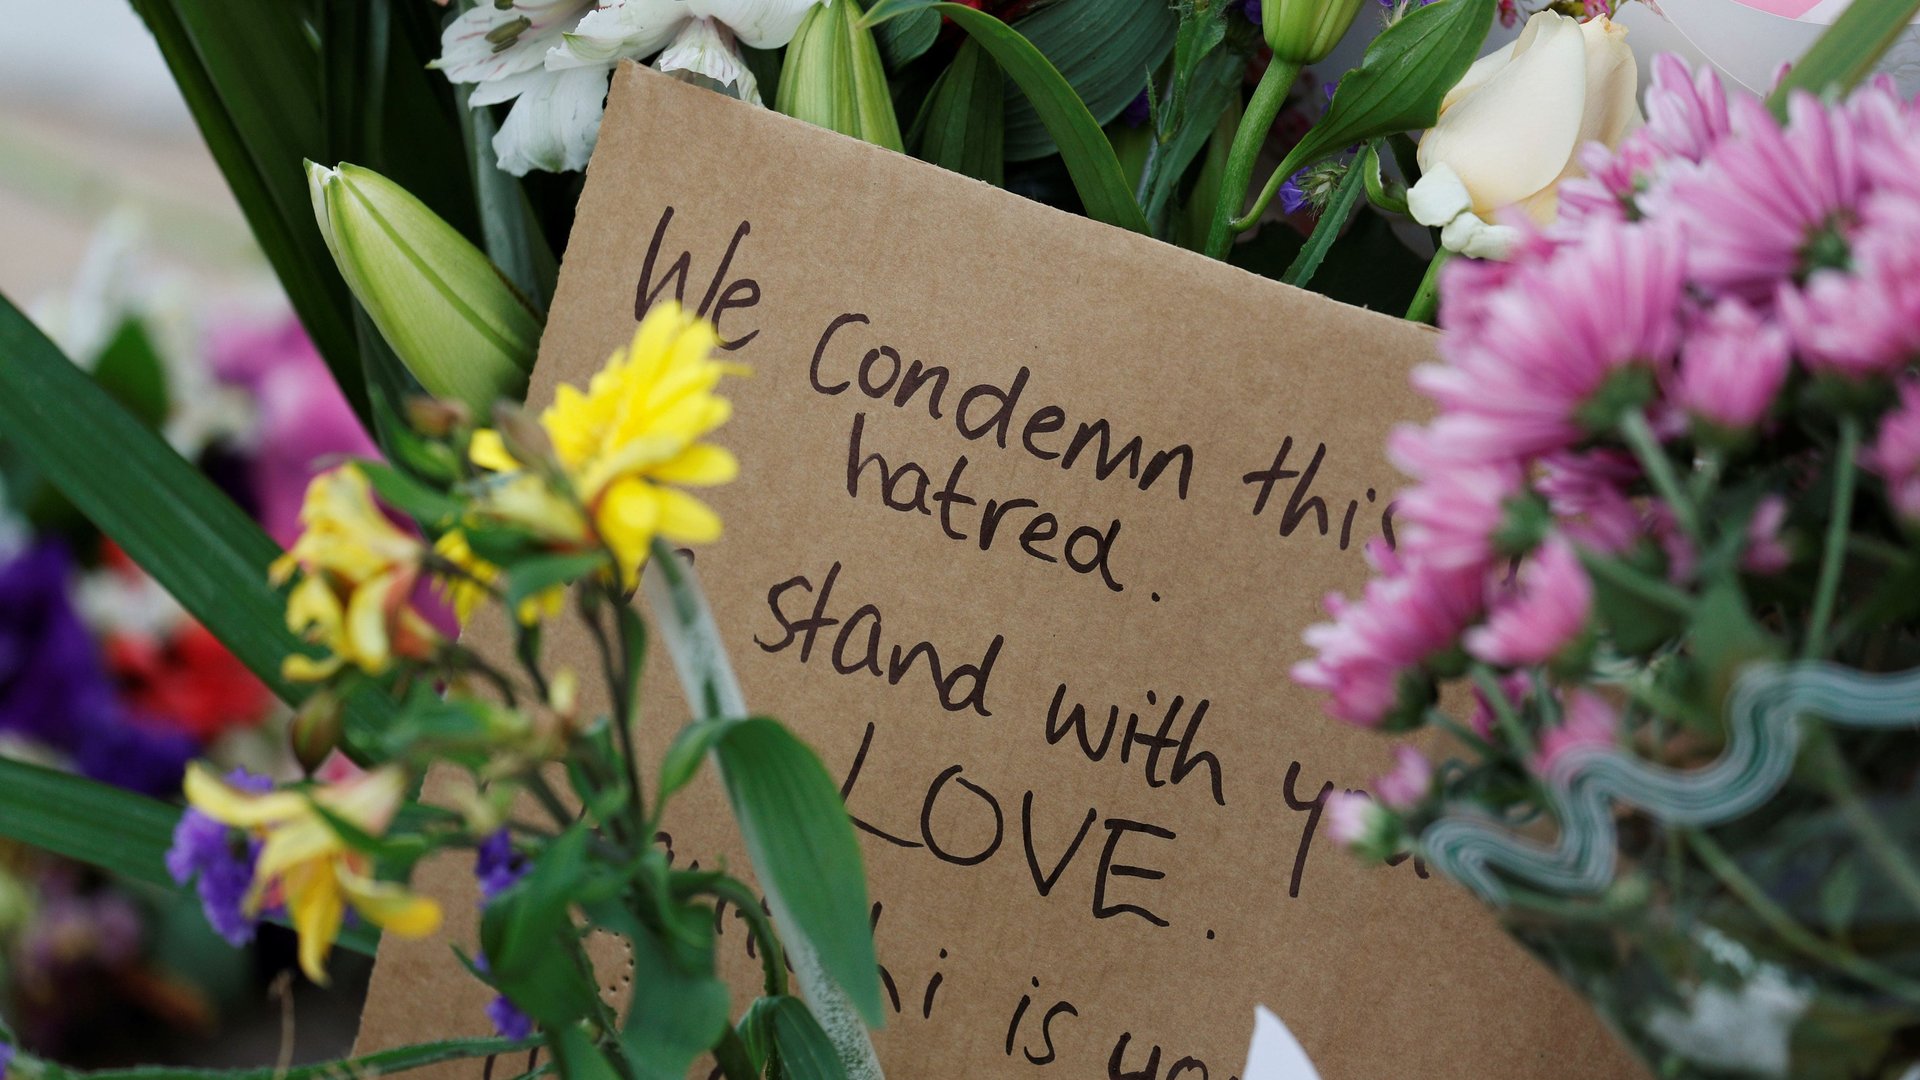 We condemn this
hatred.
stand with
LOVE.
is